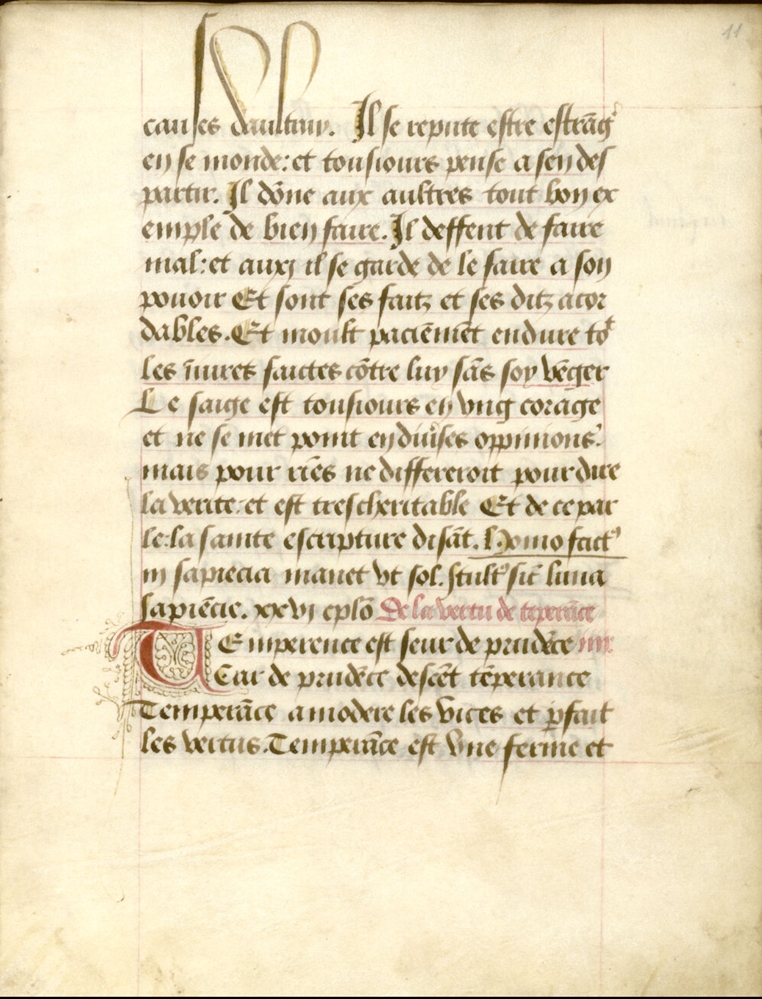 11
causes daultruy. Il se repute estre estrāg̛
en se monde: et tousiours pense a sen des
partir. Il dōne aux aultres tout bon ex
emple de bien faire. Il deffent de faire
mal: et auxi il se garde de le faire a son
pouoir Et sont ses faitz et ses ditz acor
dables. Et moult paciēmēt endure to᷑
les iniures faictes cōtre luy sās soy vēger
Le saige est tousiours en vng corage
et ne se met point en diuͥses oppinions.
mais pour riēs ne differeroit pour dire
la verite: et est trescheritable Et de ce par
le: la sainte escripture disāt. Homo sact᷒
in sapiēcia manet vt sol. stult᷒ sic̄ luna
sapiēcie. xxvij cplō De la vertu de tēperāce
TEmperence est seur de prudēce
Car de prudēce descēt tēperance
Temperāce amodere les vices et ꝑfait
les vertus. Temperāce est vne ferme et